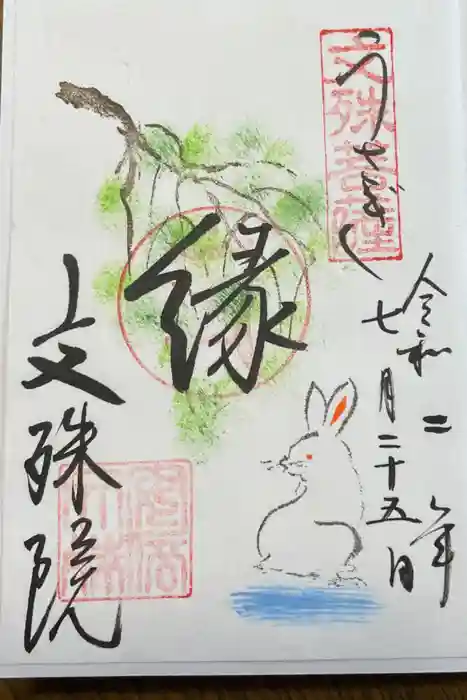 文殊菩薩
うさぎし
令和二年
七月二十五日
縁
文殊院